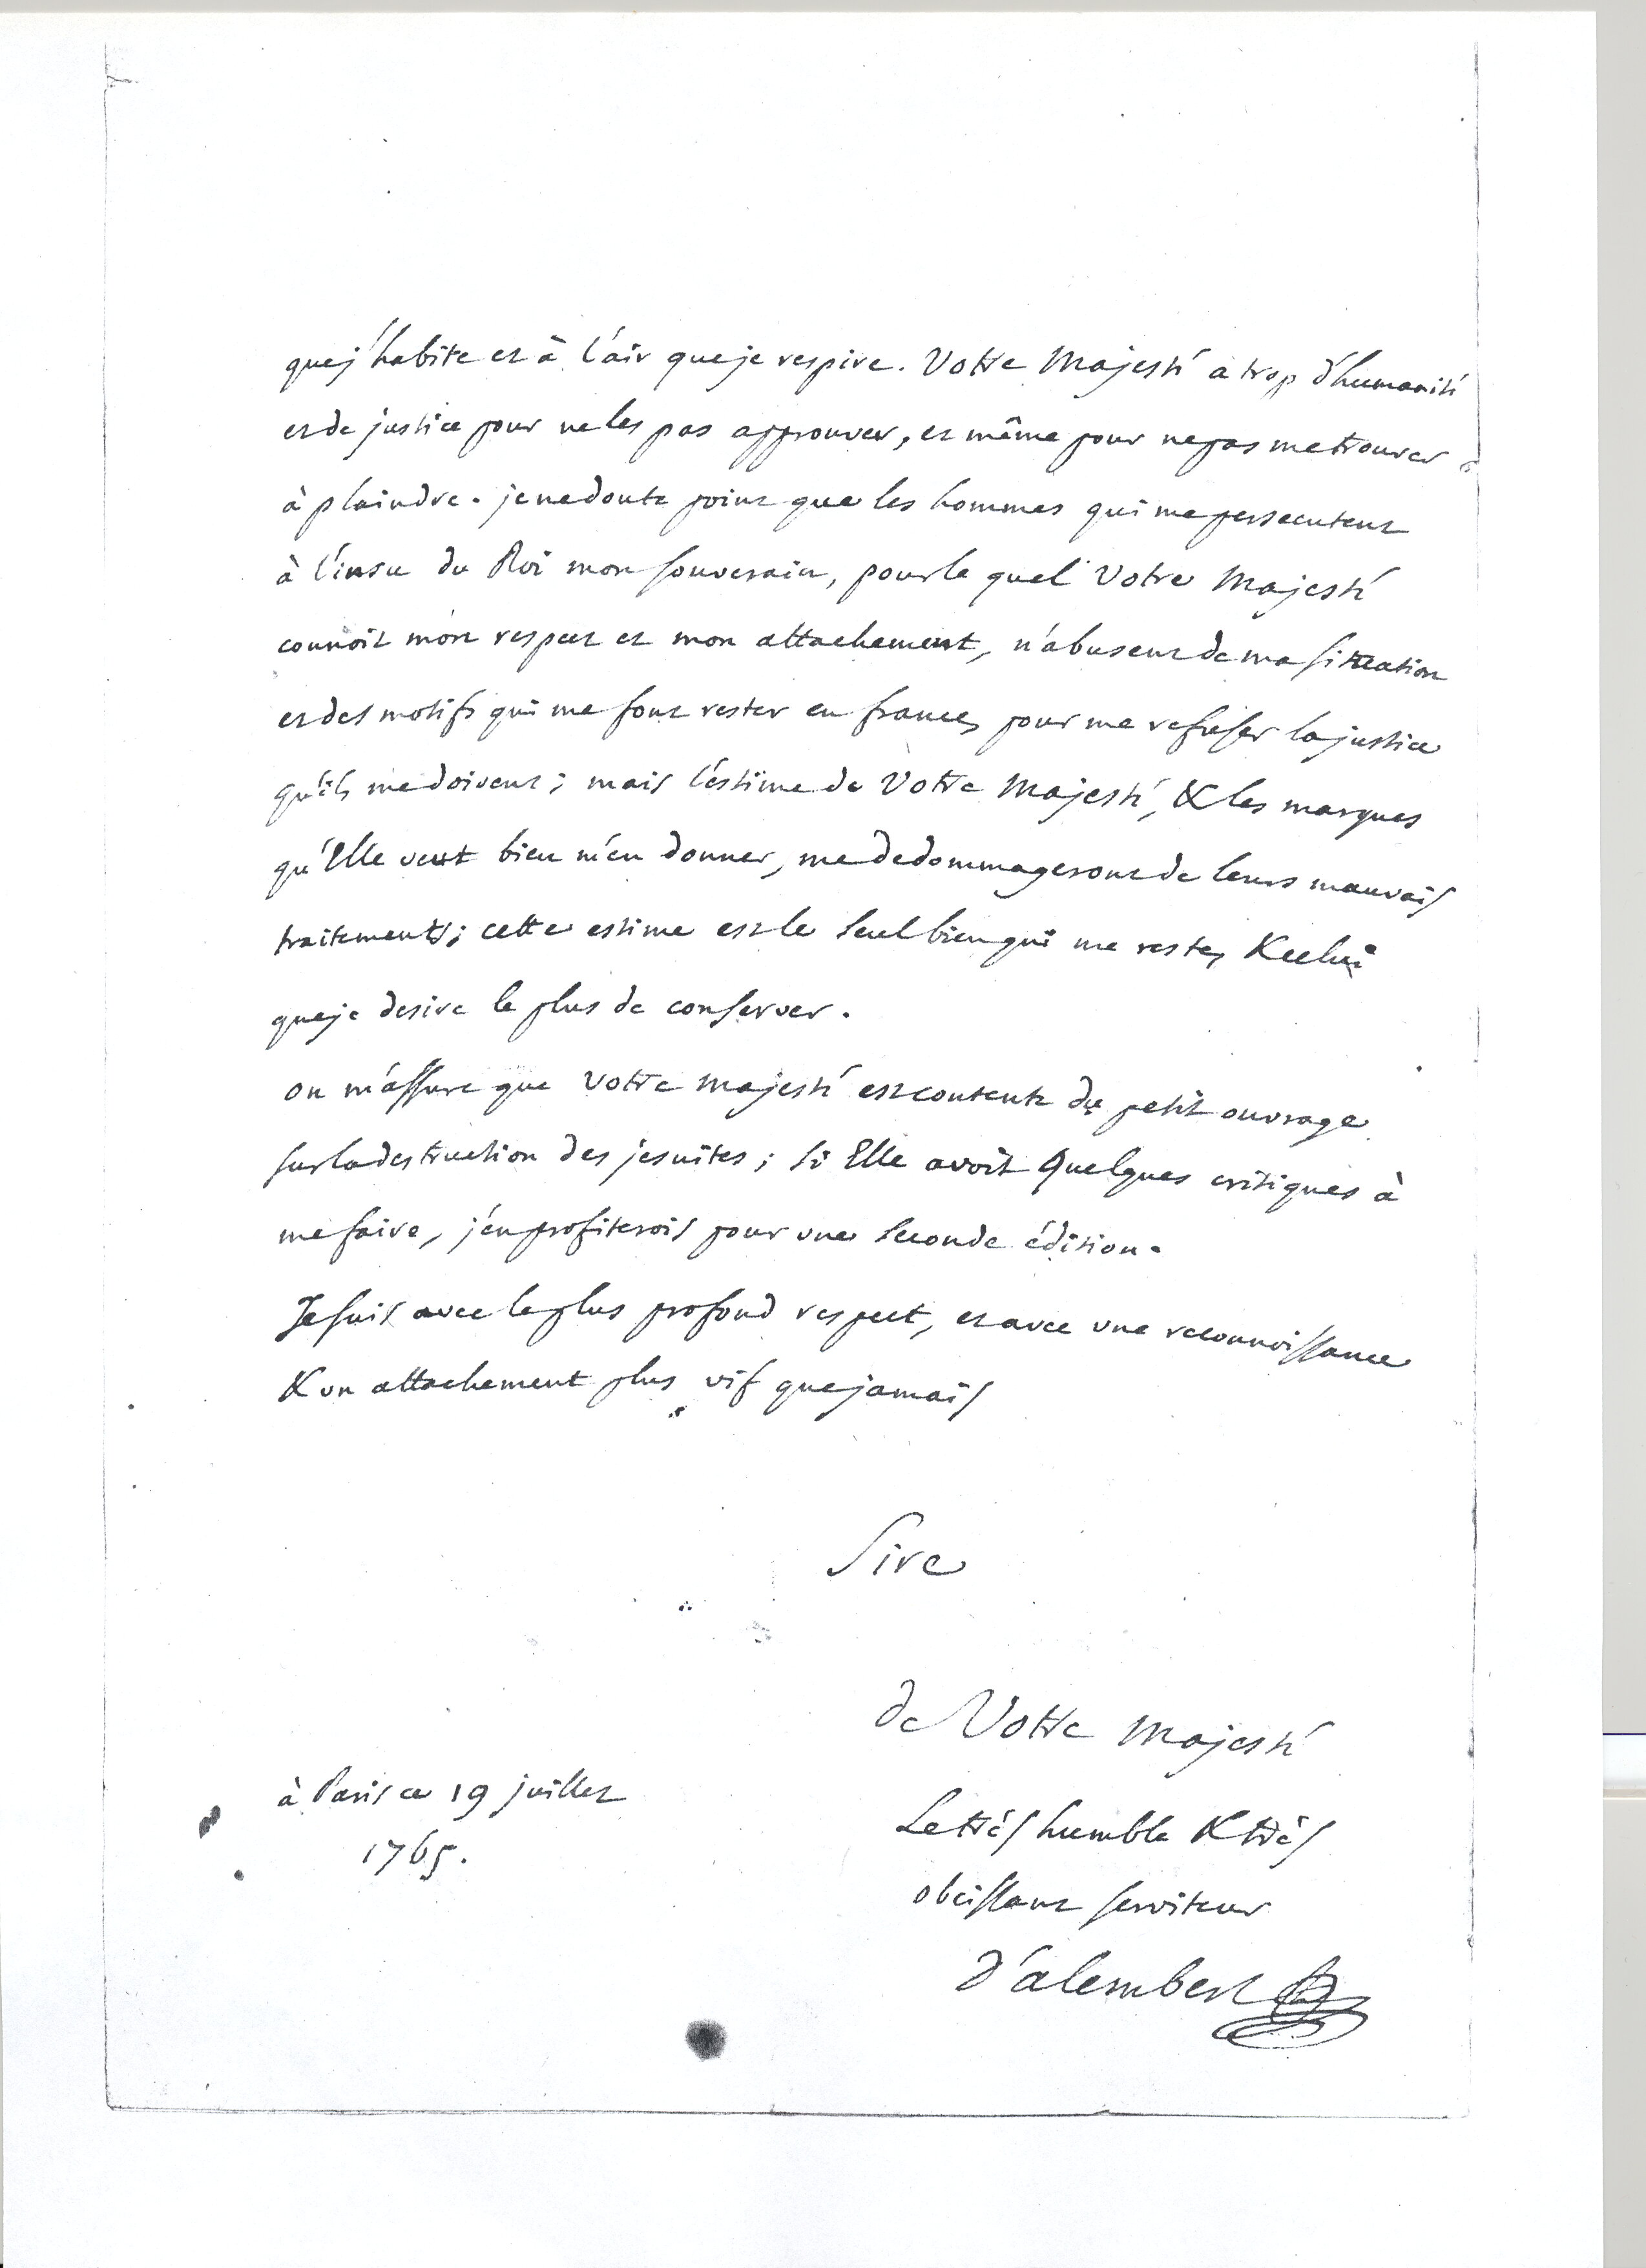 que j'habite et à l'air que je respire. Votre Majesté a trop d'humanité
et de justice pour ne les pas approuver, et même pour ne pas me trouver
à plaindre. je ne doute point que les hommes qui me persecutent
à l'insu du Roi mon souverain, pour le quel Votre Majesté
connoit mon respect et mon attachement, n'abusent de ma situation
et des motifs qui me font rester en france, pour me refuser la justice
qu'ils me doivent; mais l'estime de Votre Majesté, & les marques
qu'Elle veut bien m'en donner, me dedommageront de leurs mauvais
traitements; cette estime est le seul bien qui me reste, & celui
que je desire le plus de conserver.
on m'assure que Votre Majesté est contente du petit ouvrage
sur la destruction des jesuites; si Elle avoit quelques critiques à
me faire, j'en profiterois pour une seconde édition.
Je suis avec le plus profond respect, et avec une reconnoissance
& un attachement plus vif que jamais
Sire
de Votre Majesté
à Paris ce 19 juillet
1765.
Le très humble & très
obeissant serviteur
d'alembert